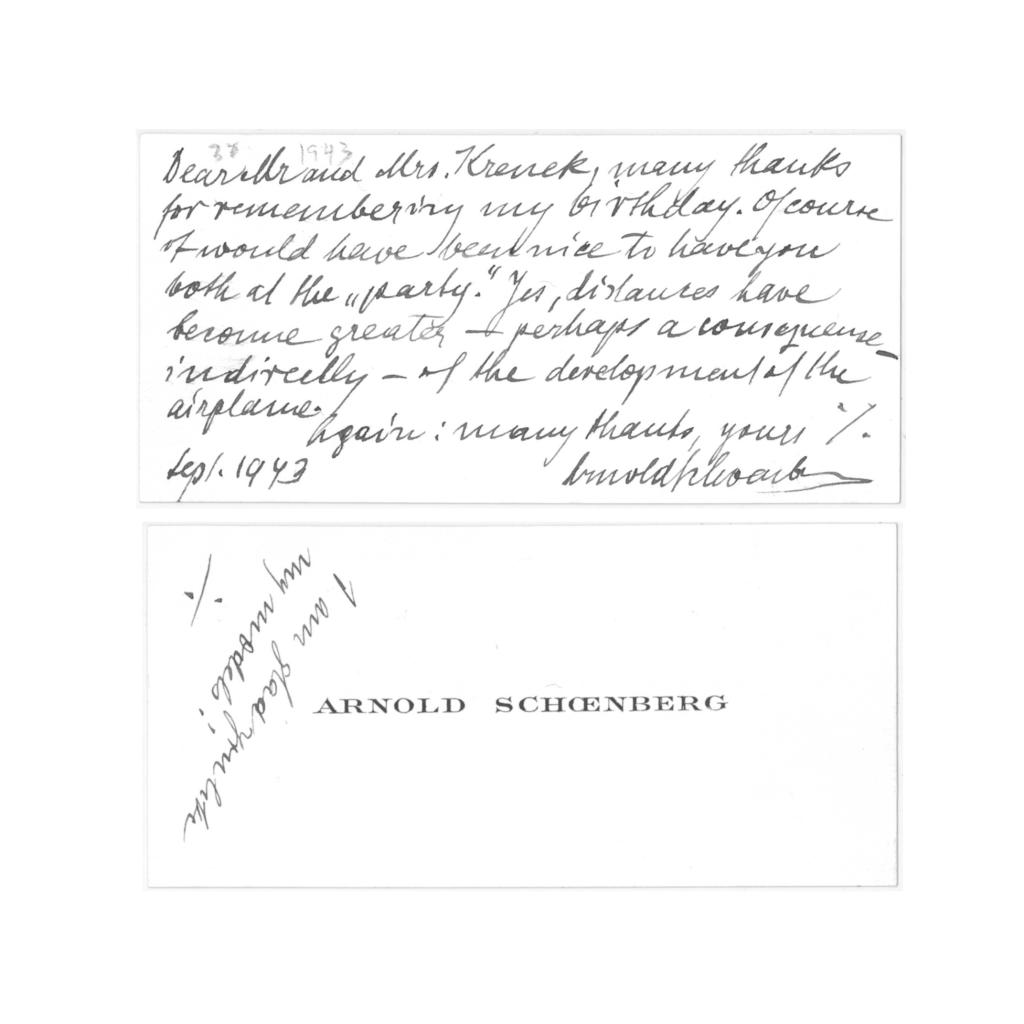 38 1943
Dear Mr and Mrs. Krenek, many thanks
for remembering my birthday. Of course
it would have been nice to have you
both at the „party.“ Yes, distances have
become greater – perhaps a consequense –
indirectly – of the development of the
airplane.
Again: many thanks, yours ·/.
Sept. 1943 Arnold Schoenberg
·/.
I am glad you like
my models!
ARNOLD SCHŒNBERG